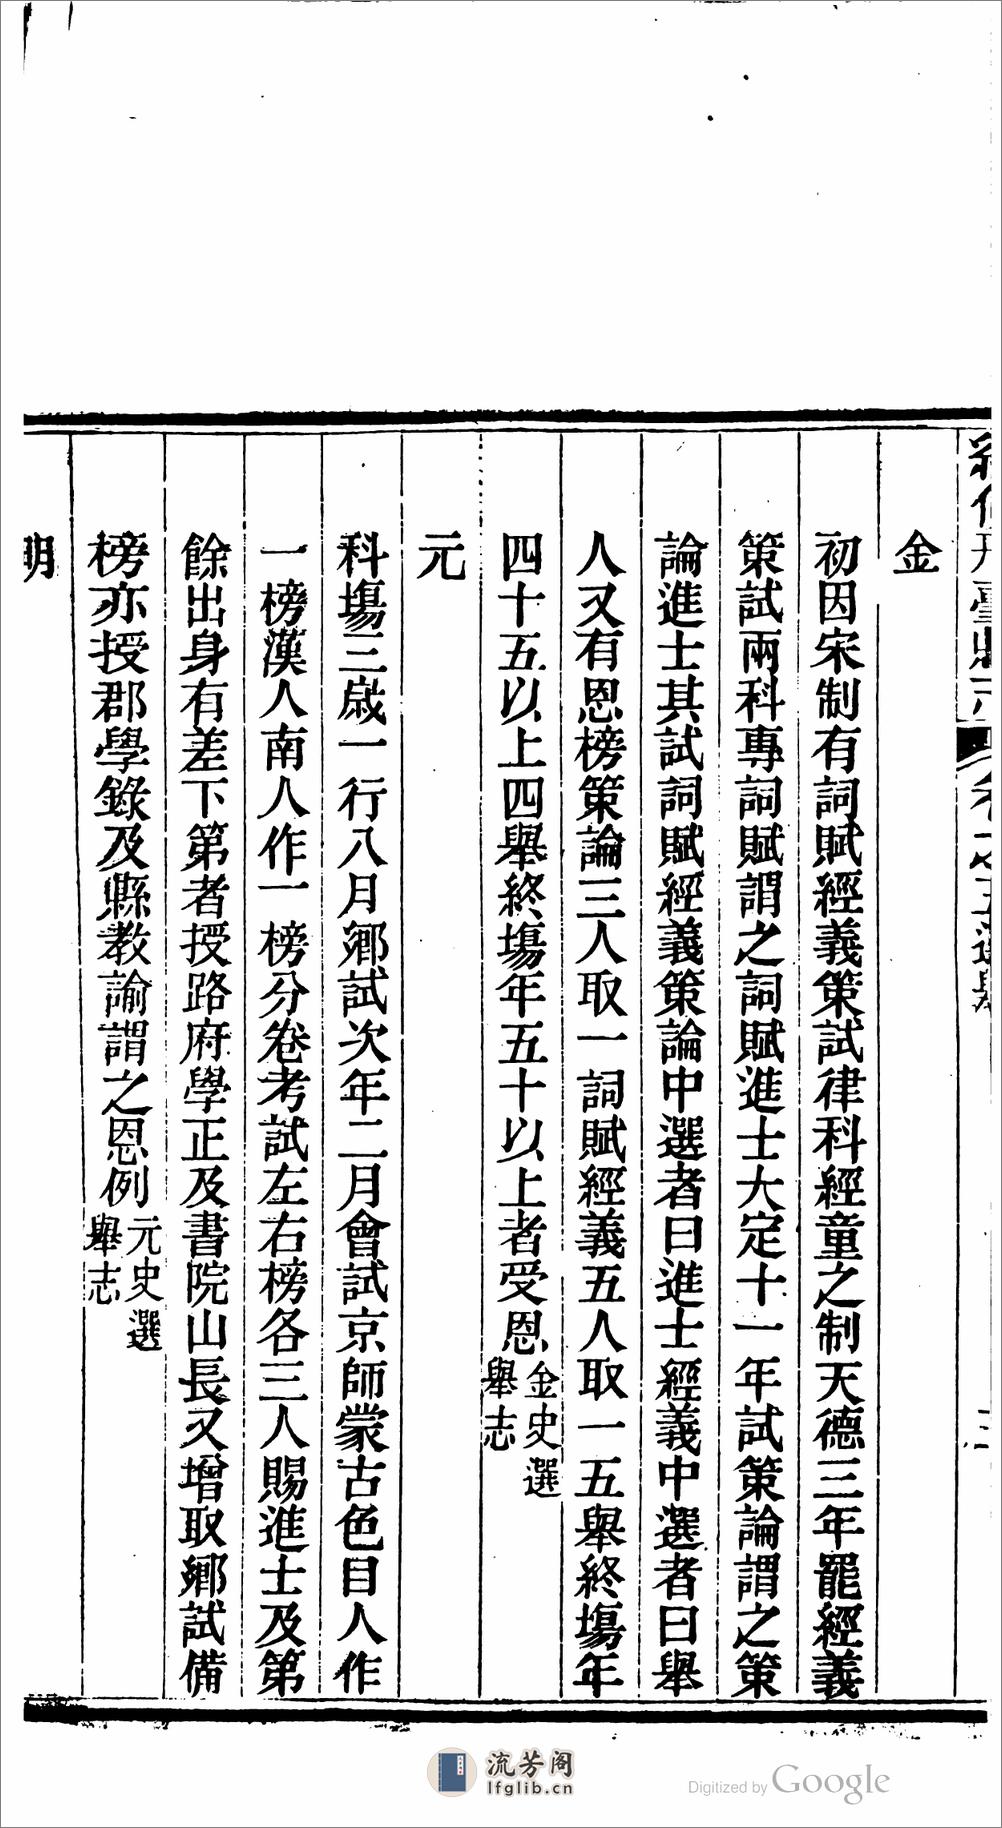 金
初因宋制有詞賦經義策試律科經童之制天德三年罷經義
策試兩科專詞賦謂之詞賦進士大定十一年試策論謂之策
論進士其試詞賦經義策論中選者曰進士經義中選者曰舉
人又有恩榜策論三人取一詞賦經義五人取一五舉終場年
四十五以上四舉終場年五十以上者受恩金史選
舉志
元
科場三歲一行八月鄉試次年二月會試京師蒙古色目人作
一榜漢人南人作一榜分卷考試左右榜各三人賜進士及第
餘出身有差下第者授路府學正及書院山長又增取鄉試備
榜亦授郡學錄及縣教諭謂之恩例元史選
舉志
明
流芳阁
lfglib.cn
Digitized by Google